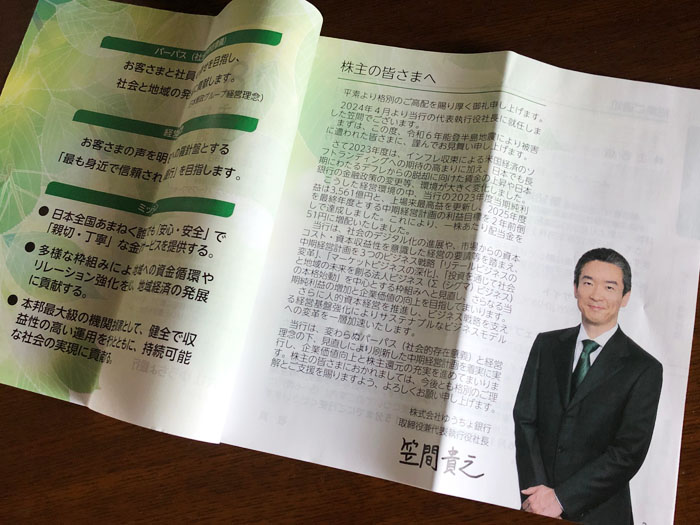 パーパス（社
お客さまと社員
を目指し、
社会と地域の発
献します。
グループ経営理念）
経営
お客さまの声を明
羅針盤とする
「最も身近で信頼され
行」を目指します。
ミッ
●日本全国あまねく誰
でも「安心・安全」で
「親切・丁寧」な金
サービスを提供する。
●多様な枠組みによ
地域への資金循環や
リレーション強化を
、地域経済の発展
に貢献する。
●本邦最大級の機関
投資家として、健全で収
益性の高い運用を
とともに、持続可能
な社会の実現に貢
株主の皆さまへ
平素より格別のご高配を賜り厚く御礼申し上げます。
2024年4月より当行の代表執行役社長に就任しま
した笠間でございます。
まずは、この度、令和6年能登半島地震により被害
に遭われた皆さまに、謹んでお見舞い申し上げます。
さて2023年度は、インフレ収束による米国経済のソ
フトランディングへの期待の高まりに加え、日本でも長
期にわたるデフレからの脱却に向けた賃金の上昇や日本
銀行の金融政策の変更等、環境が大きく変化しました。
こうした経営環境の中、当行の2023年度当期純利
益は3,561億円と、上場来最高益を更新し、2025年度
を最終年度とする中期経営計画の利益目標を2年前倒
しで達成しました。これにより、一株あたり配当金を
51円に増配いたしました。
当行は、社会のデジタル化の進展や、市場からの資本
コスト・資本収益性を意識した経営の要請等を踏まえ、
中期経営計画を3つのビジネス戦略（「リテールビジネスの
変革」「マーケットビジネスの深化」、「投資を通じて社会
と地域の未来を創る法人ビジネス（Σ（シグマ）ビジネス）
の本格始動」）を中心とする枠組みへと見直し、さらなる当
期純利益の増加と企業価値の向上を目指してまいります。
さらに人的資本経営を推進し、ビジネス戦略を支え
る経営基盤強化によりサステナブルなビジネスモデル
への変革を一層加速いたします。
当行は、変わらぬパーパス（社会的存在意義）と経営
理念の下、見直しにより刷新した中期経営計画を着実に実
行し、企業価値向上と株主還元の充実を進めてまいりま
す。株主の皆さまにおかれましては、今後とも格別のご理
解とご支援を賜りますよう、よろしくお願い申し上げます。
株式会社ゆうちょ銀行
取締役兼代表執行役社長
笠間貴之